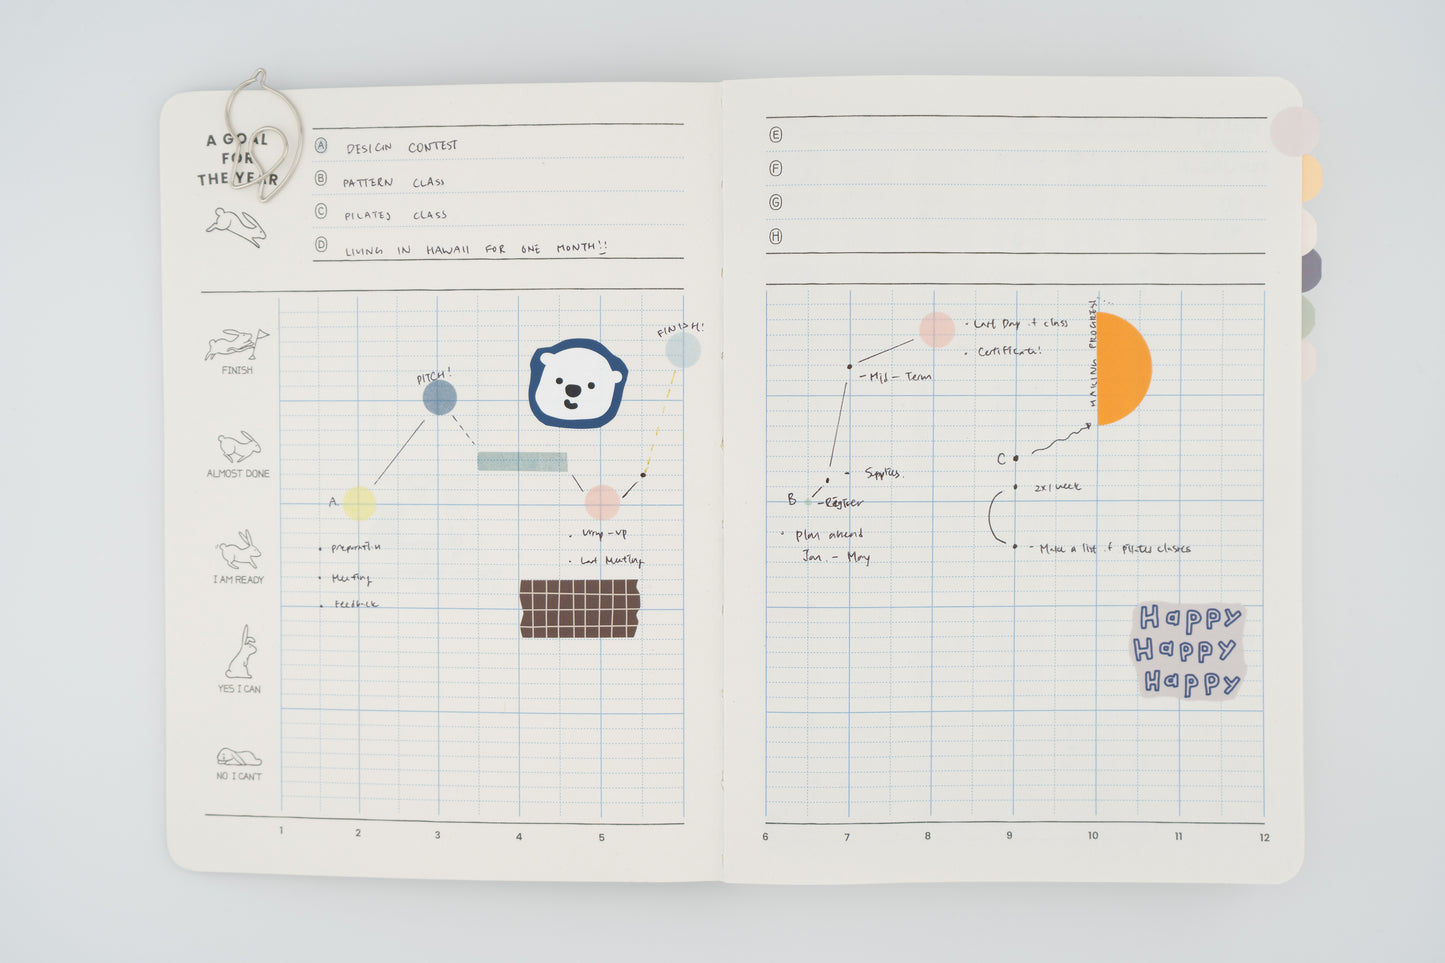 A GOAL
FOR
THE YEAR
Ⓐ DESIGN CONTEST
Ⓑ PATTERN CLASS
Ⓒ PILATES CLASS
Ⓓ LIVING IN HAWAII FOR ONE MONTH!!
FINISH
ALMOST DONE
I AM READY
YES I CAN
NO I CAN'T
PITCH!
FINISH!
A.
• Preparation
• Meeting
• Feedback
• Wrap-up
• Last Meeting
1 2 3 4 5
Ⓔ
Ⓕ
Ⓖ
Ⓗ
• Last Day of class
• Certificate!
- Mid-Term
- Supplies.
B
- Register
• Plan ahead
Jan. - May
MAKING PROGRESS
C
2x1 week
- Make a list of pilates classes
Happy
Happy
Happy
6 7 8 9 10 11 12